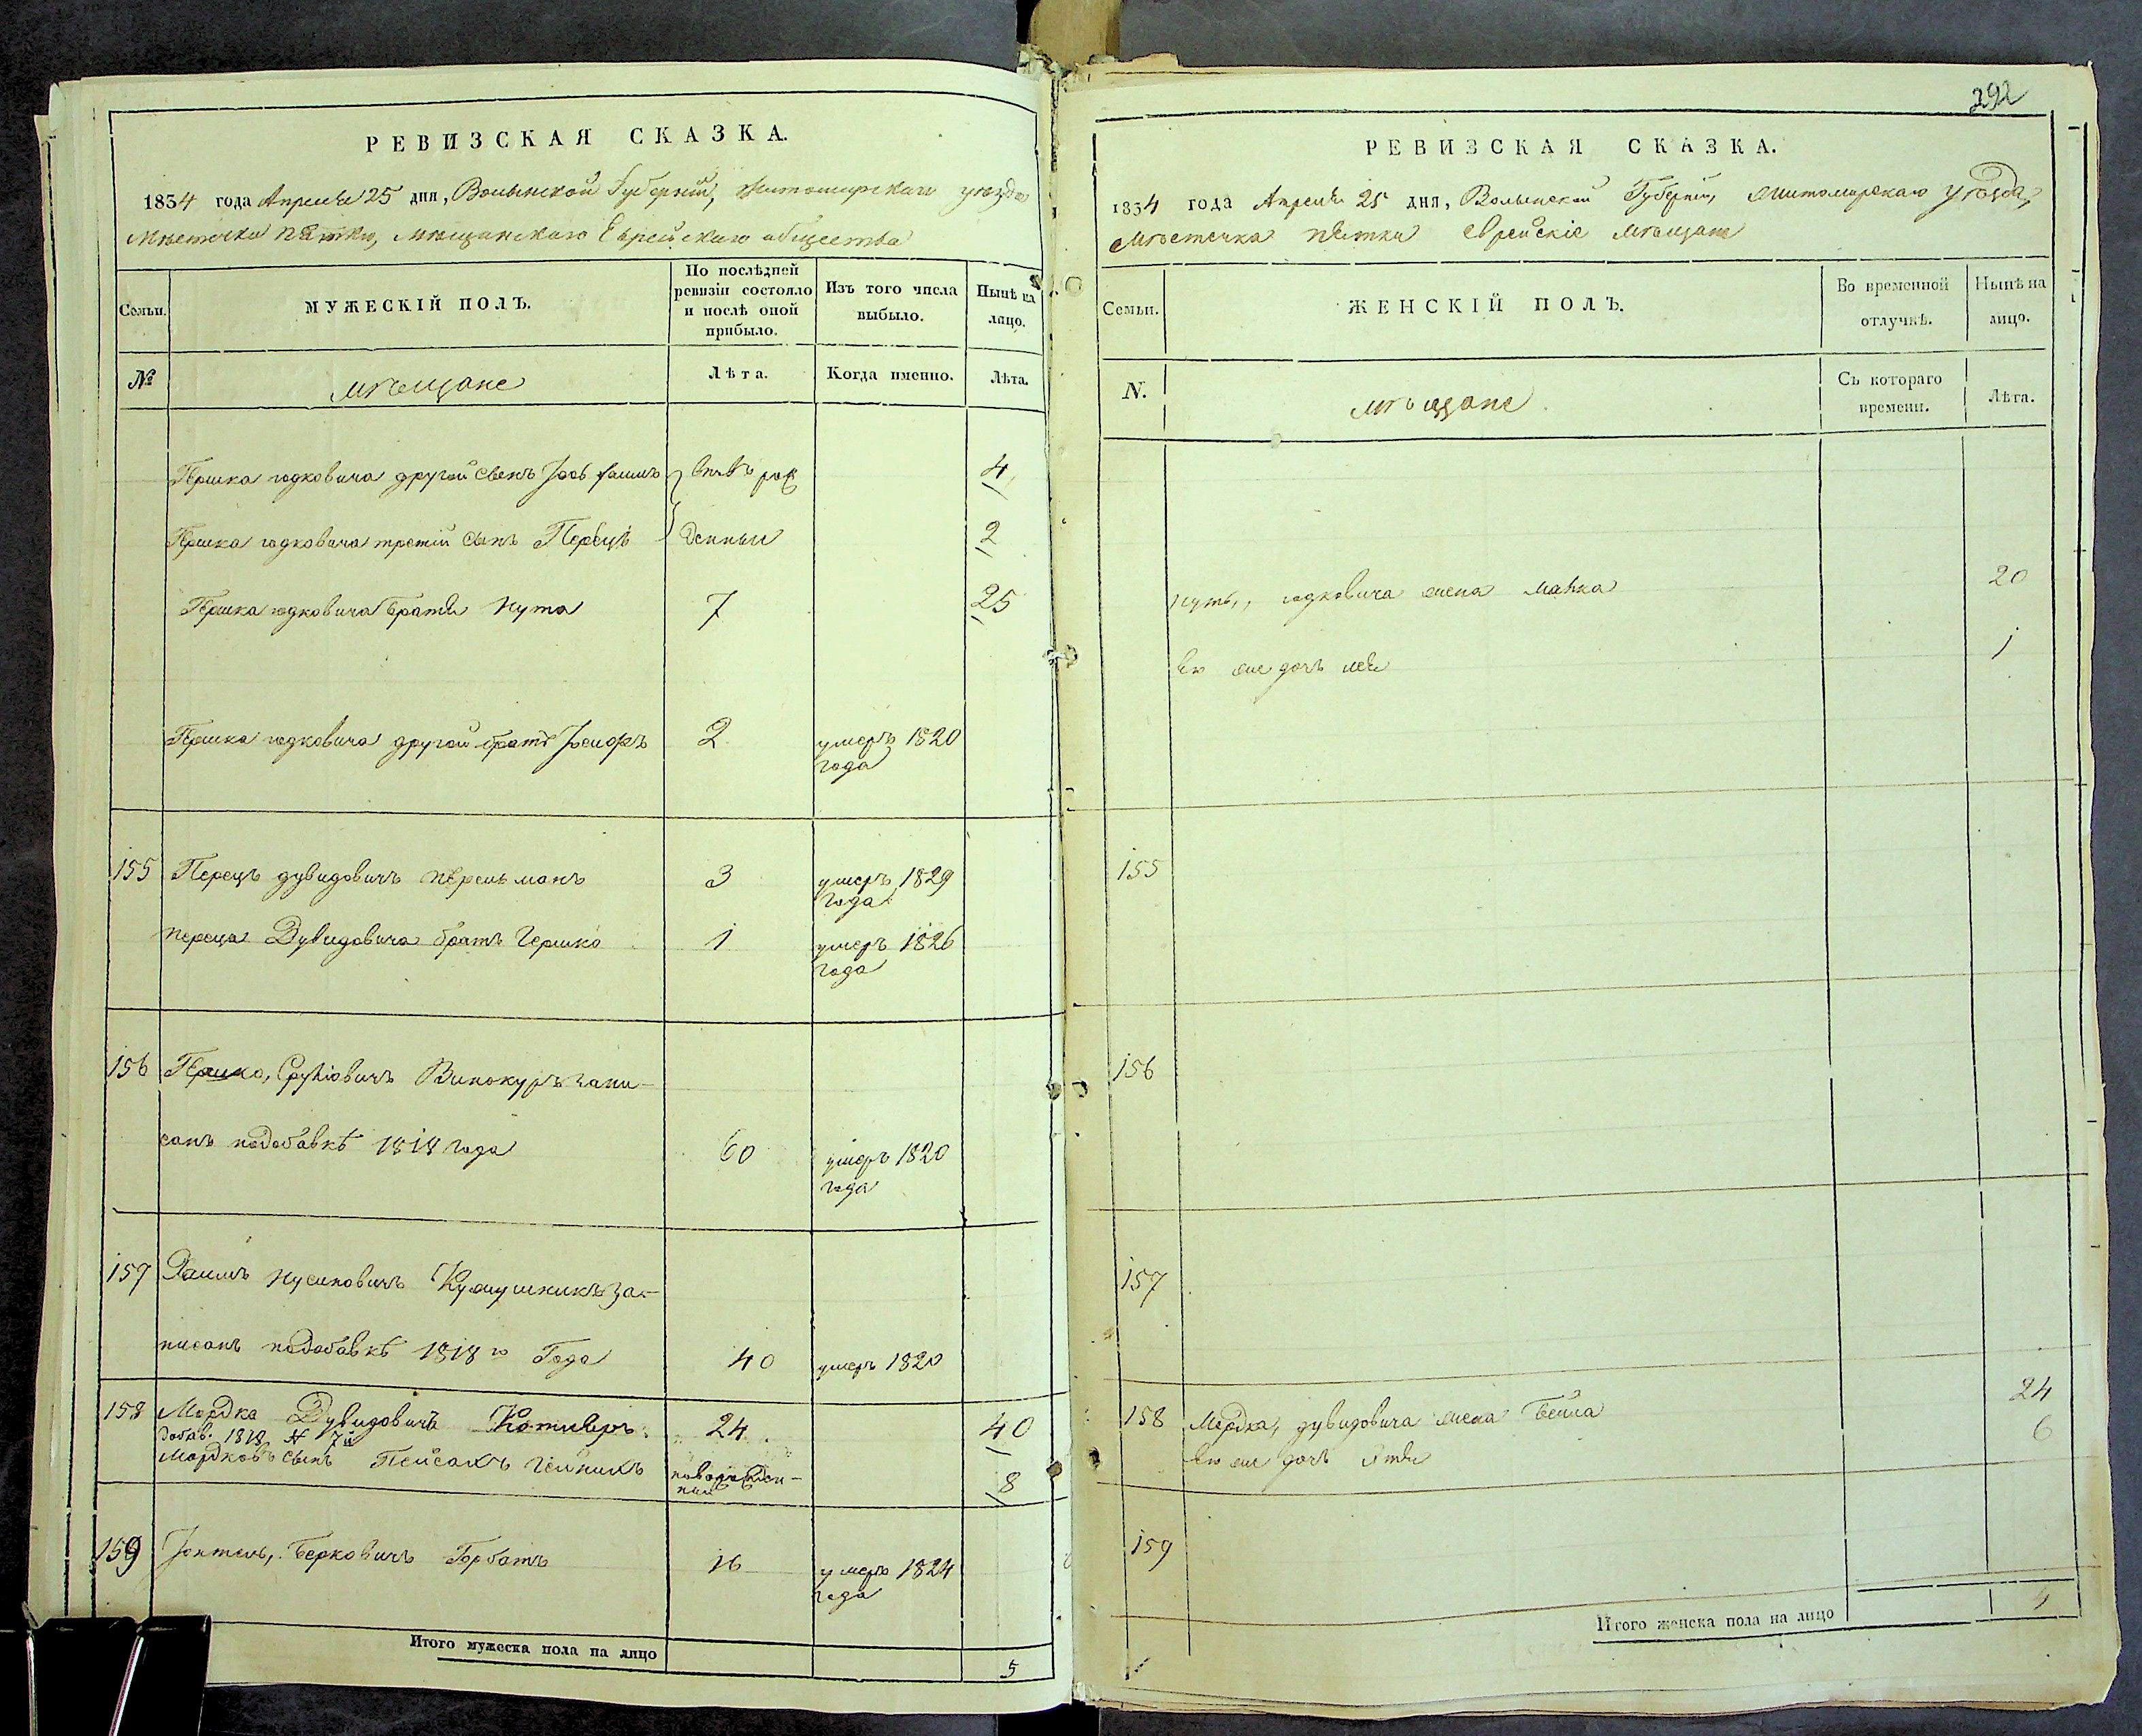 РЕВИЗСКАЯ СКАЗКА.
1834 года Апреля 25 дня, Волынской Губернїи, Житомирскаго уѣзда
Мѣстечка Пятки, мѣщанскаго Еврейскаго общества
Семьи.
МУЖЕСКІЙ ПОЛЪ.
По послѣдней
ревизіи состояло
и послѣ оной
прибыло.
Изъ того числа
выбыло.
Нынѣ на
лицо.
№
мѣщане
Лѣта.
Когда именно.
Лѣта.
Гершка юдковича другой сынъ 4
Гершка юдковича третїй сынъ Перецъ 2
Гершка юдковича братъ Нута 7 25
Гершка юдковича другой братъ 2 умеръ 1820
года
155 Перецъ дувидовичъ 3 умеръ 1829
года
переца Дувидовича братъ Гершко 1 умеръ 1826
года
156 Гершко, Сруліовичъ Винокуръ запи-
санъ подобавкѣ 1818 года 60 умеръ 1820
года
157 за-
писанъ подобавкѣ 1818 го Года 40 умеръ 1820
158 Мордка Дувидовичъ 24 40
добав. 1818 N 7й
Мордковъ сынъ Пейсахъ 8
159 Берковичъ Горбатъ 16 умеръ 1824
года
Итого мужеска пола на лицо 5
292
РЕВИЗСКАЯ СКАЗКА.
1834 года Апреля 25 дня, Волынской Губернїи, Житомирскаго уѣзда,
Мѣстечка пятки Еврейскіе мѣщане
Семьи.
ЖЕНСКІЙ ПОЛЪ.
Во временной
отлучкѣ.
Нынѣ на
лицо.
N.
мѣщане
Съ котораго
времени.
Лѣта.
юдковича жена 20
Ею же дочь 1
155
156
157
158 Мордка, дувидовича жена Бейла 24
Ею же дочь 6
159
Итого женска пола на лицо